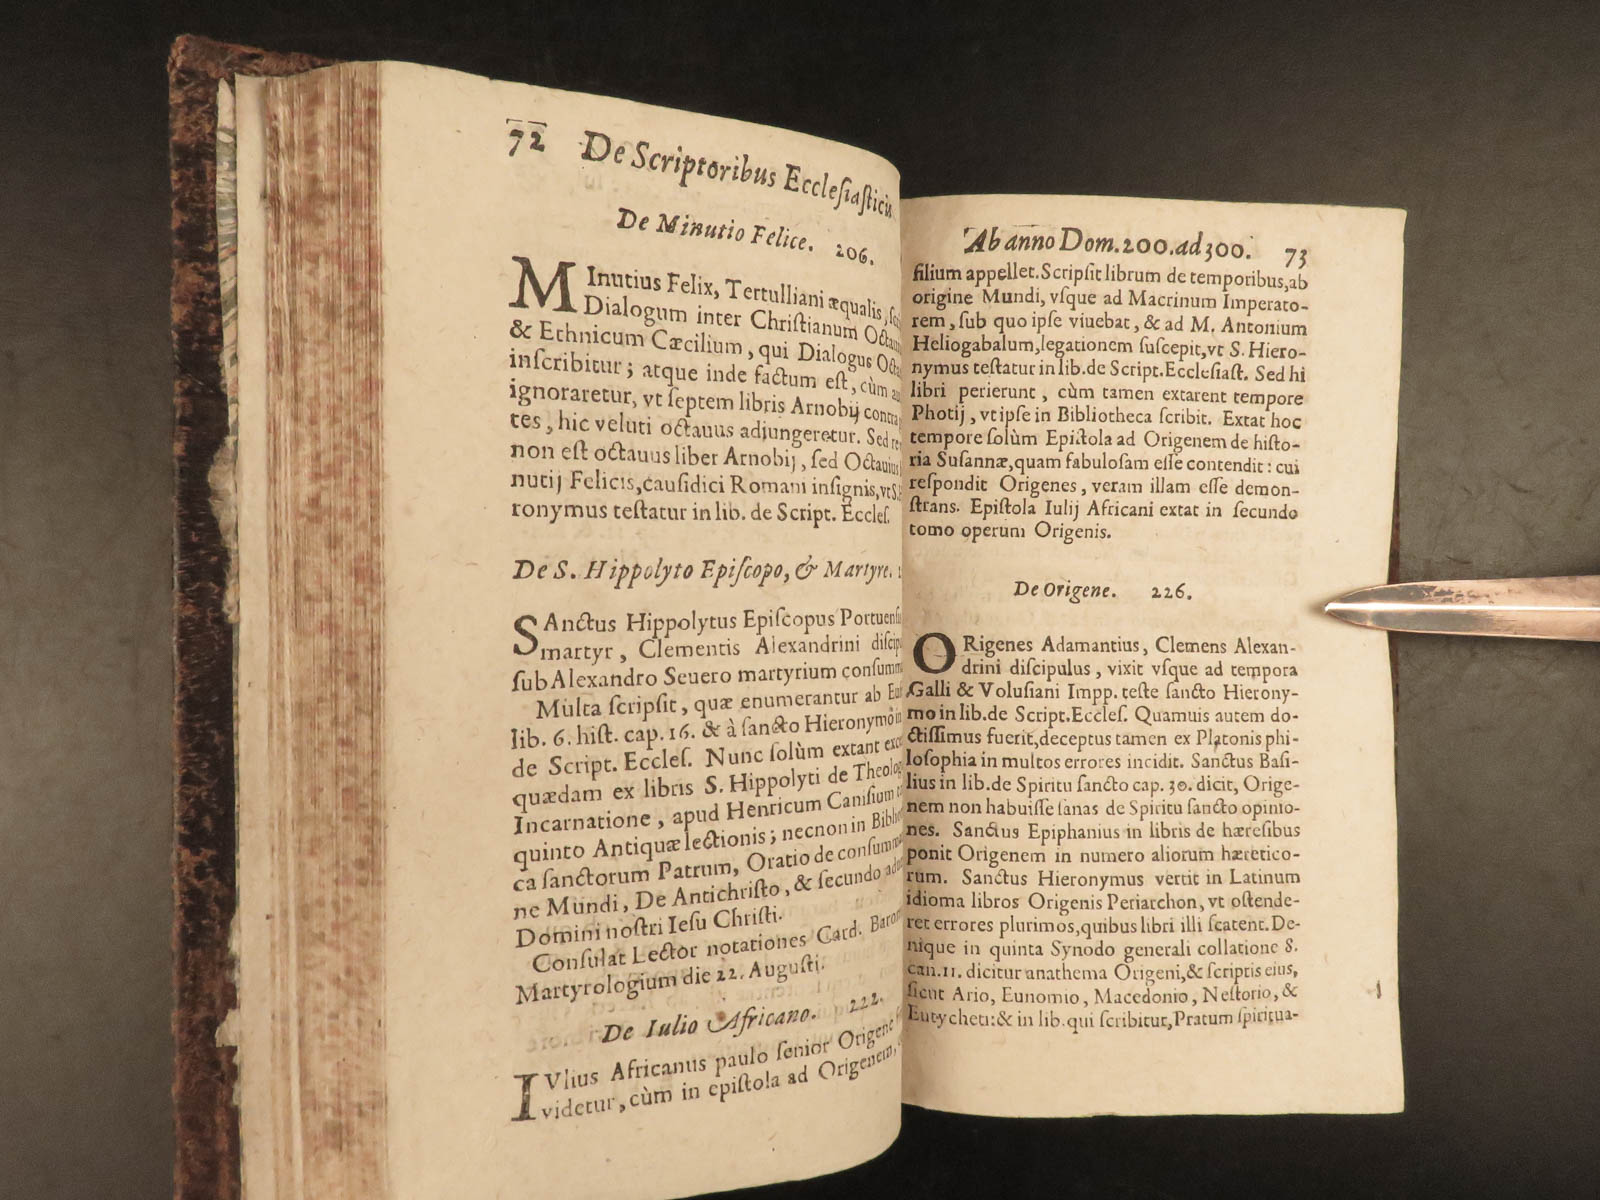 72 De Scriptoribus Ecclesiasticis
De Minutio Felice. 206.
MInutius Felix, Tertulliani æqualis,
Dialogum inter Christianum
& Ethnicum Cæcilium, qui Dialogus
inscribitur; atque inde factum est, cùm
ignoraretur, vt septem libris Arnobij contra
tes, hic veluti octauus adjungeretur. Sed
non est octauus liber Arnobij, sed Octauius
nutij Felicis, causidici Romani insignis, vt S.
ronymus testatur in lib. de Script. Eccles.
De S. Hippolyto Episcopo, & Martyre.
SAnctus Hippolytus Episcopus Portuens
martyr, Clementis Alexandrini discip
sub Alexandro Seuero martyrium consumm
Multa scripsit, quæ enumerantur ab Eu
lib. 6. hist. cap. 16. & à sancto Hieronymo in
de Script. Eccles. Nunc solùm extant exc
quædam ex libris S. Hippolyti de Theolog
Incarnatione, apud Henricum Canisium
quinto Antiquæ lectionis; necnon in Biblio
ca sanctorum Patrum, Oratio de consumm
ne Mundi, De Antichristo, & secundo ad
Domini nostri Iesu Christi.
Consulat Lector notationes Card. Baron
Martyrologium die 22. Augusti.
De Iulio Africano. 222.
IVlius Africanus paulo senior Origene
videtur, cùm in epistola ad Origenem,
Ab anno Dom. 200. ad 300. 73
filium appellet. Scripsit librum de temporibus, ab
origine Mundi, vsque ad Macrinum Imperato-
rem, sub quo ipse viuebat, & ad M. Antonium
Heliogabalum, legationem suscepit, vt S. Hiero-
nymus testatur in lib. de Script. Ecclesiast. Sed hi
libri perierunt, cùm tamen extarent tempore
Photij, vt ipse in Bibliotheca scribit. Extat hoc
tempore solùm Epistola ad Origenem de histo-
ria Susannæ, quam fabulosam esse contendit: cui
respondit Origenes, veram illam esse demon-
strans. Epistola Iulij Africani extat in secundo
tomo operum Origenis.
De Origene. 226.
ORigenes Adamantius, Clemens Alexan-
drini discipulus, vixit vsque ad tempora
Galli & Volusiani Impp. teste sancto Hierony-
mo in lib. de Script. Eccles. Quamuis autem do-
ctissimus fuerit, deceptus tamen ex Platonis phi-
losophia in multos errores incidit. Sanctus Basi-
lius in lib. de Spiritu sancto cap. 30. dicit, Orige-
nem non habuisse sanas de Spiritu sancto opinio-
nes. Sanctus Epiphanius in libris de hæresibus
ponit Origenem in numero aliorum hæretico-
rum. Sanctus Hieronymus vertit in Latinum
idioma libros Origenis Periarchon, vt ostende-
ret errores plurimos, quibus libri illi scatent. De-
nique in quinta Synodo generali collatione 8.
can. 11. dicitur anathema Origeni, & scriptis eius,
sicut Ario, Eunomio, Macedonio, Nestorio, &
Eutycheti: & in lib. qui scribitur, Pratum spiritua-